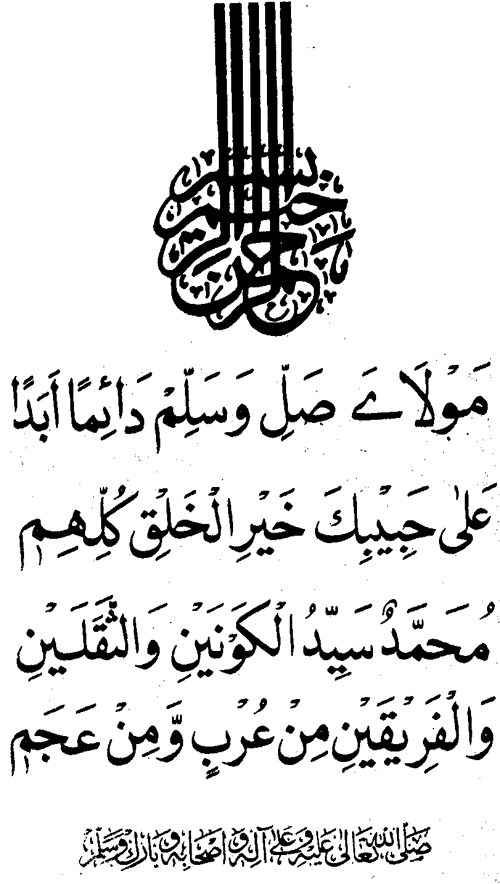 بسم الله الرحمن الرحيم
مَوْلَایَ صَلِّ وَسَلِّمْ دَائِمًا اَبَدًا
عَلٰی حَبِیْبِكَ خَیْرِ الْخَلْقِ کُلِّهِمِ
مُحَمَّدٌ سَیِّدُ الْکَوْنَیْنِ وَالثَّقَلَیْنِ
وَالْفَرِیْقَیْنِ مِنْ عُرْبٍ وَّمِنْ عَجَمِ
صَلَّی اللهُ تَعَالٰی عَلَیْهِ وَعَلٰی آلِهٖ وَاَصْحَابِهٖ وَبَارَكَ وَسَلَّمَ